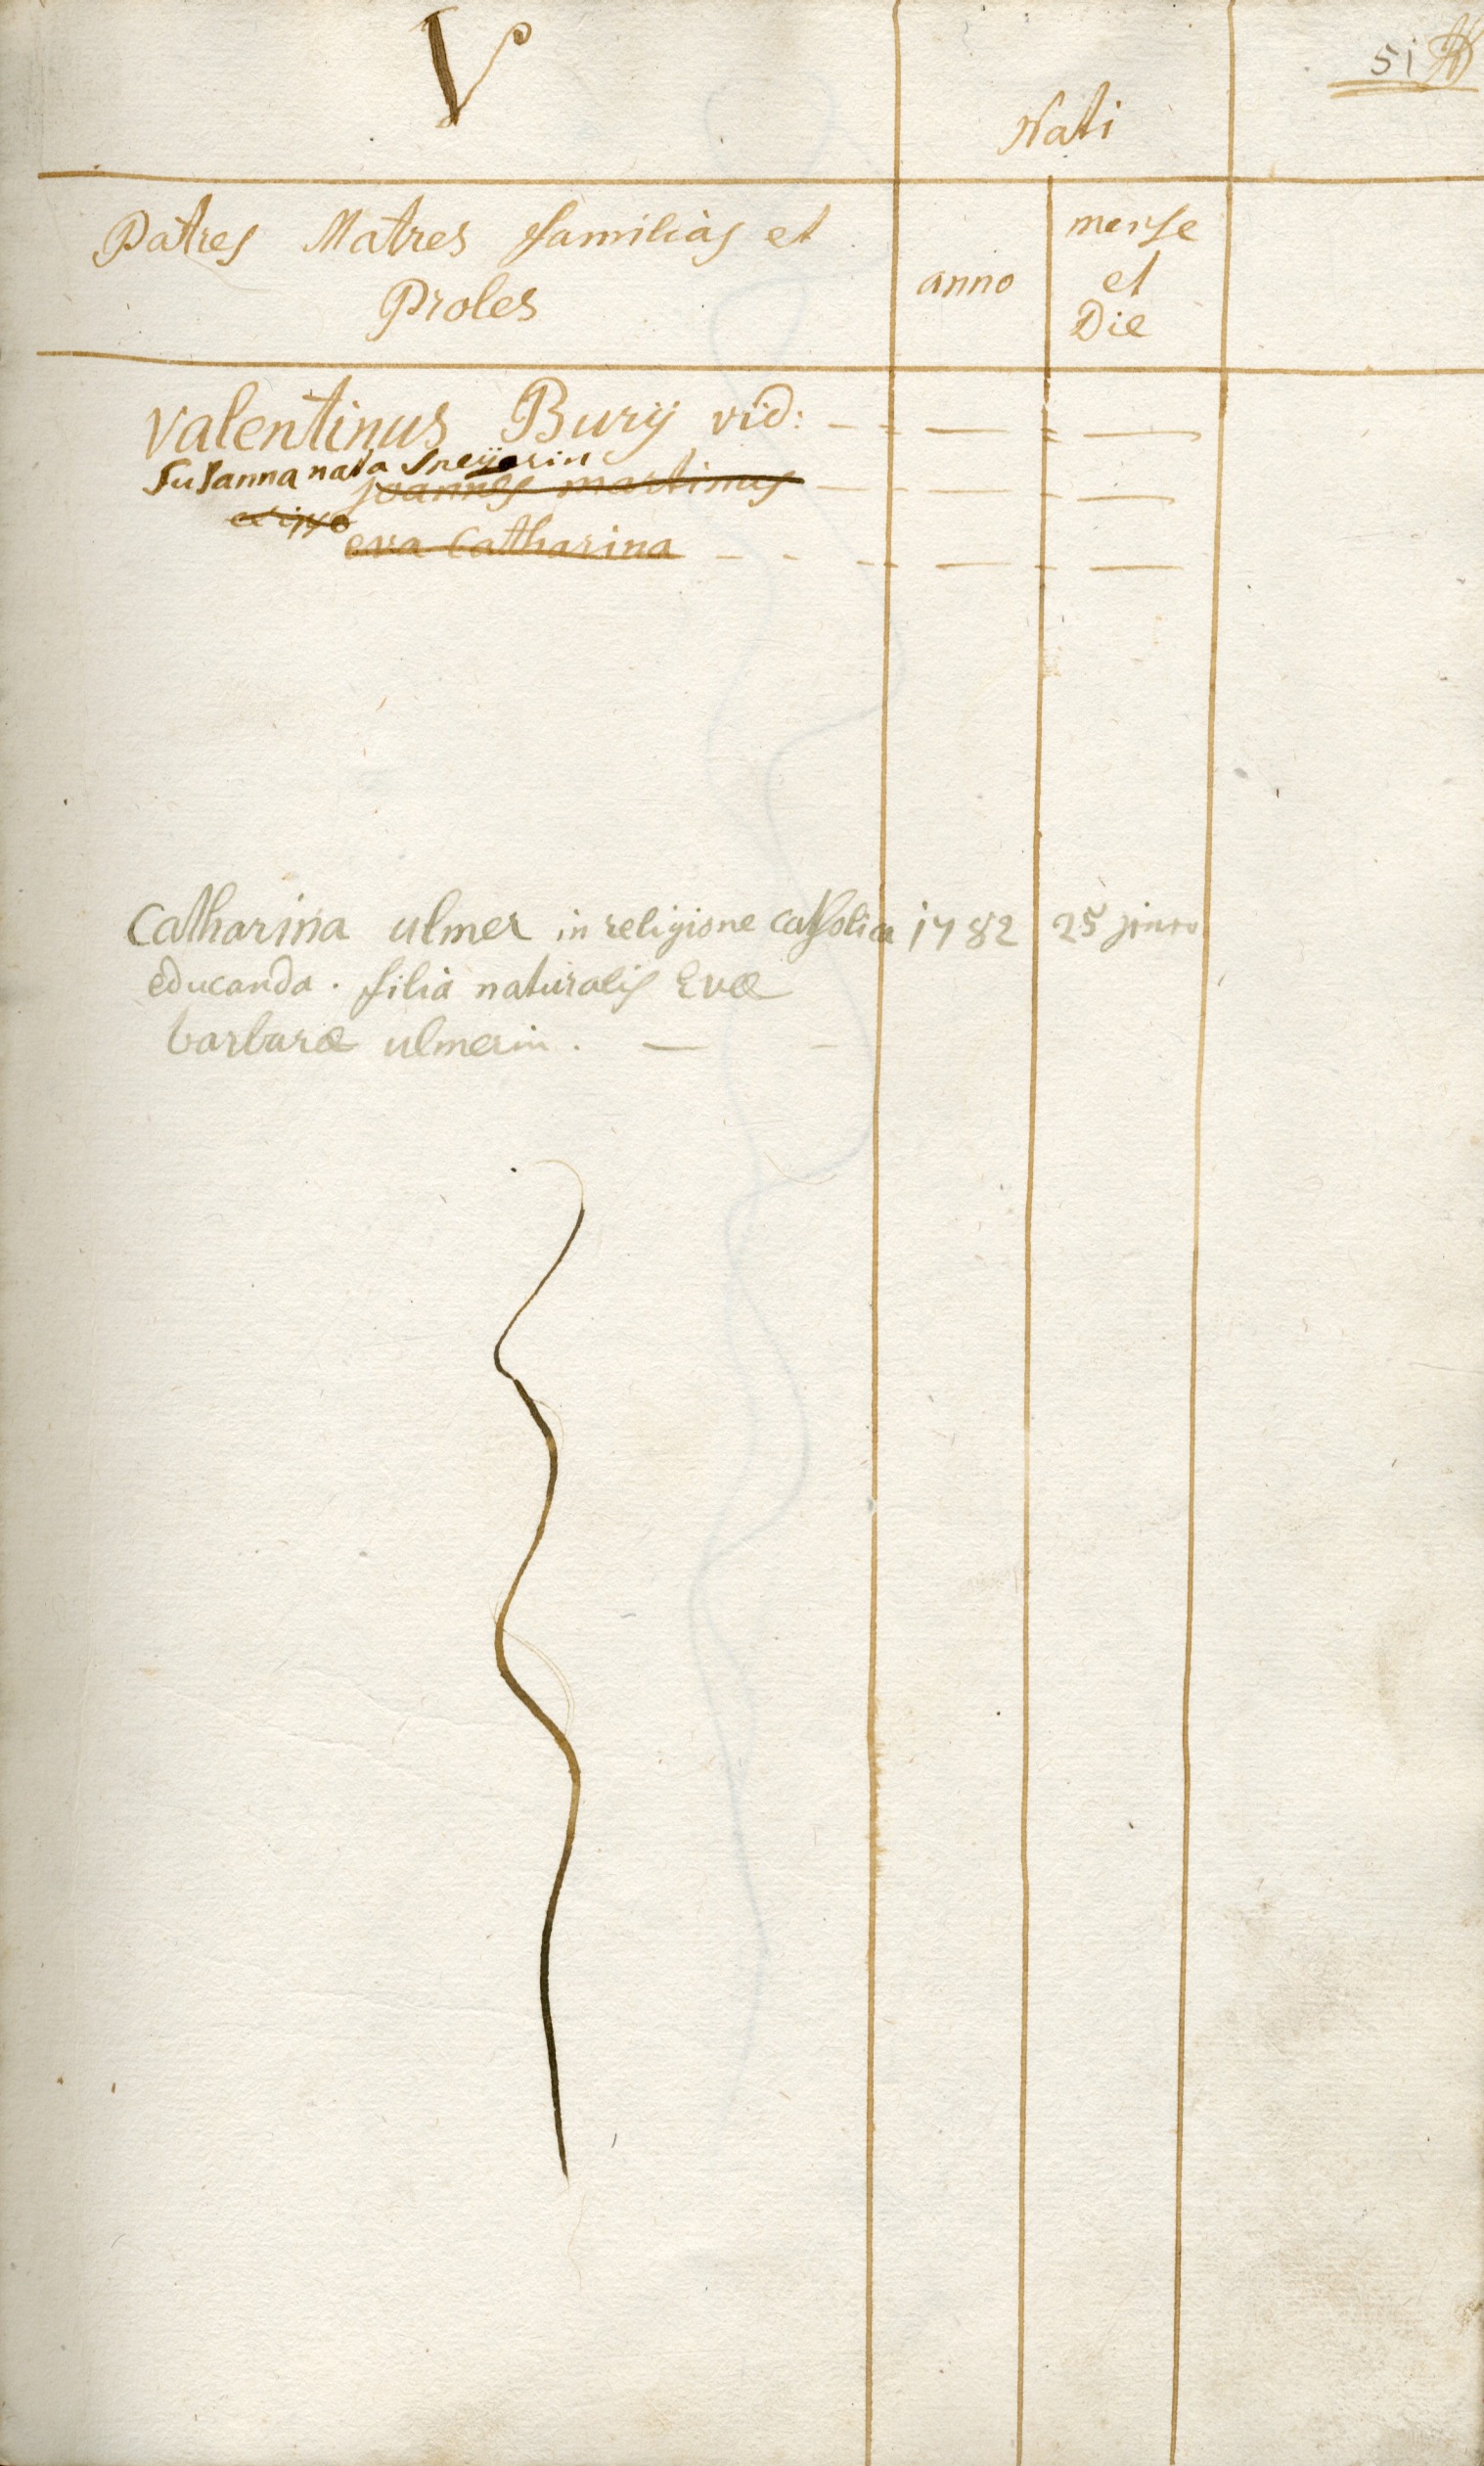 V
51
Nati
Patres Matres familias et
Proles
anno
mense
et
Die
Valentinus Bury vid:
Susanna nata
Joannes martinus
eva Catharina
Catharina ulmer in religione catholica 1782 25
educanda. filia naturalis Evæ
barbaræ ulmerin.